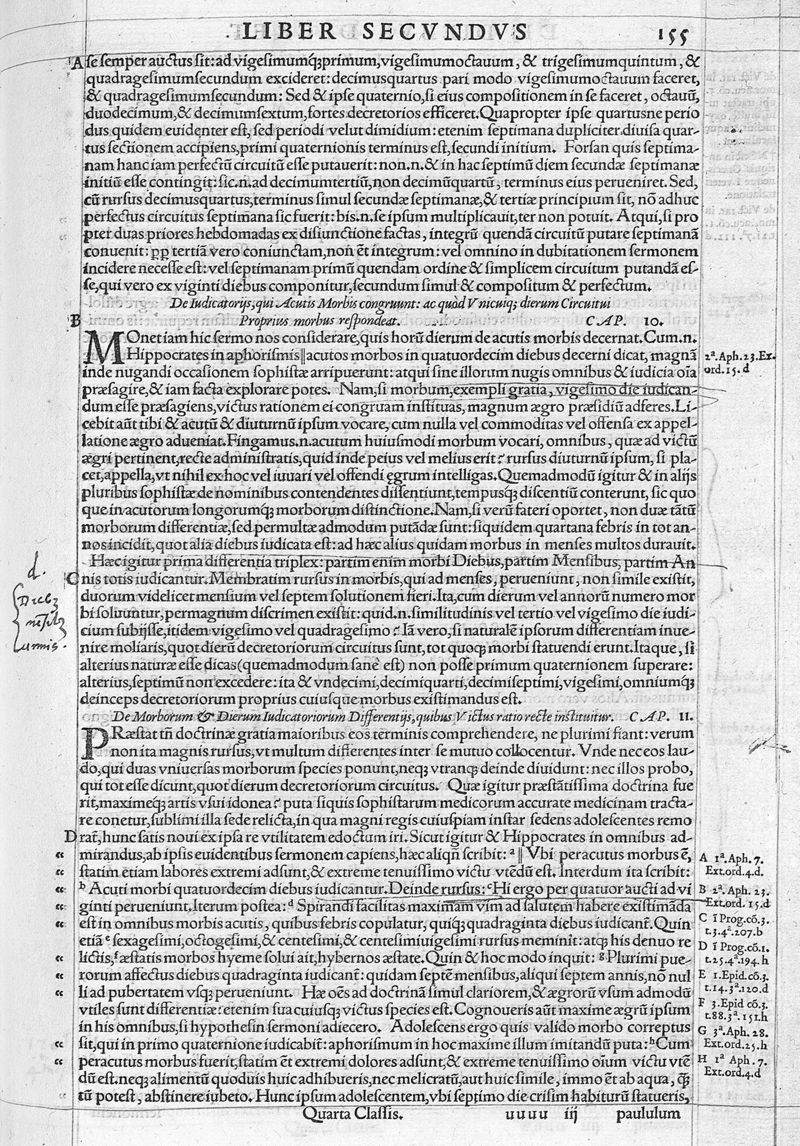 LIBER SECVNDVS 155
A se semper auctus sit: ad vigesimumq́;primum, vigesimumoctauum, & trigesimumquintum, &
quadragesimumsecundum excideret: decimusquartus pari modo vigesimumoctauum faceret,
& quadragesimumsecundum: Sed & ipse quaternio, si eius compositionem in se faceret, octauũ,
duodecimum, & decimumsextum, fortes decretorios efficeret. Quapropter ipse quartusne perio
dus quidem euidenter est, sed periodi velut dimidium: etenim septimana dupliciter diuisa quar-
tus sectionem accipiens, primi quaternionis terminus est, secundi initium. Forsan quis septima-
nam hanc iam perfectũ circuitũ esse putauerit: non.n.& in hac septimũ diem secundæ septimanæ
initiũ esse contingit: sic.n.ad decimumtertiũ, non decimũquartũ, terminus eius perueniret. Sed,
cũ rursus decimusquartus, terminus simul secundæ septimanæ, & tertiæ principium sit, nõ adhuc
perfectus circuitus septimana sic fuerit: bis.n.se ipsum multiplicauit, ter non potuit. Atqui, si pro
pter duas priores hebdomadas ex disiunctione factas, integrũ quendã circuitũ putare septimanã
conuenit: ꝓꝓ tertiã vero coniunctam, non ẽt integrum: vel omnino in dubitationem sermonem
incidere necesse est: vel septimanam primũ quendam ordine & simplicem circuitum putandã es-
se, qui vero ex viginti diebus componitur, secundum simul & compositum & perfectum.
De Iudicatorijs, qui Acutis Morbis congruunt: ac quòd Vnicuiq; dierum Circuitui
B Proprius morbus respondeat. CAP. 10.
MOnet iam hic sermo nos considerare, quis horũ dierum de acutis morbis decernat. Cum.n.
Hippocrates in aphorismis ‖ acutos morbos in quatuordecim diebus decerni dicat, magnã
2ª.Aph.23.Ex.
ord.15.d
inde nugandi occasionem sophistæ arripuerunt: atqui sine illorum nugis omnibus & iudicia oĩa
præsagire, & iam facta explorare potes. Nam, si morbum, exempli gratia, vigesimo die iudican-
dum esse præsagiens, victus rationem ei congruam instituas, magnum ægro præsidiũ adferes. Li-
cebit aũt tibi & acutũ & diuturnũ ipsum vocare, cum nulla vel commoditas vel offensa ex appel-
latione ægro adueniat. Fingamus.n.acutum huiusmodi morbum vocari, omnibus, quæ ad victũ
ægri pertinent, recte administratis, quid inde peius vel melius erit? rursus diuturnũ ipsum, si pla-
cet, appella, vt nihil ex hoc vel iuuari vel offendi ęgrum intelligas. Quemadmodũ igitur & in alijs
pluribus sophistæ de nominibus contendentes dissentiunt, tempusq; discentiũ conterunt, sic quo
que in acutorum longorumq́; morborum distinctione. Nam, si verũ fateri oportet, non duæ tãtũ
morborum differentiæ, sed permultæ admodum putãdæ sunt: siquidem quartana febris in tot an-
nos incidit, quot alia diebus iudicata est: ad hæc alius quidam morbus in menses multos durauit.
Hæc igitur prima differentia triplex: partim enim morbi Diebus, partim Mensibus, partim An
C nis totis iudicantur. Membratim rursus in morbis, qui ad menses, perueniunt, non simile existit,
duorum videlicet mensium vel septem solutionem fieri. Ita, cum dierum vel annorũ numero mor
bi soluuntur, permagnum discrimen existit: quid.n.similitudinis vel tertio vel vigesimo die iudi-
cium subijsse, itidem vigesimo vel quadragesimo? Iã vero, si naturalẽ ipsorum differentiam inue-
nire moliaris, quot dierũ decretoriorum circuitus sunt, tot quoq; morbi statuendi erunt. Itaque, si
alterius naturæ esse dicas (quemadmodum sane est) non posse primum quaternionem superare:
alterius, septimũ non excedere: ita & vndecimi, decimiquarti, decimiseptimi, vigesimi, omniumq́;
deinceps decretoriorum proprius cuiusque morbus existimandus est.
d.
Dieb;
mẽsib;
annis.
De Morborum & Dierum Iudicatoriorum Differentijs, quibus Victus ratio recte instituitur. CAP. 11.
PRæstat tñ doctrinæ gratia maioribus eos terminis comprehendere, ne plurimi fiant: verum
non ita magnis rursus, vt multum differentes inter se mutuo collocentur. Vnde nec eos lau-
do, qui duas vniuersas morborum species ponunt, neq; vtranq; deinde diuidunt: nec illos probo,
qui tot esse dicunt, quot dierum decretoriorum circuitus. Quæ igitur præstãtissima doctrina fue
rit, maximeq́; artis vsui idonea? puta siquis sophistarum medicorum accurate medicinam tracta-
re conetur, sublimi illa sede relicta, in qua magni regis cuiuspiam instar sedens adolescentes remo
D rat, hunc satis noui ex ipsa re vtilitatem edoctum iri. Sicut igitur & Hippocrates in omnibus ad-
mirandus, ab ipsis euidentibus sermonem capiens, hæc aliqñ scribit: ª ‖ Vbi peracutus morbus ẽ,
statim etiam labores extremi adsunt, & extreme tenuissimo victu vtẽdũ est. Interdum ita scribit:
ᵇ Acuti morbi quatuordecim diebus iudicantur. Deinde rursus: ᶜHi ergo per quatuor aucti ad vi
ginti perueniunt. Iterum postea: ᵈ Spirandi facilitas maximam vim ad salutem habere existimãda
est in omnibus morbis acutis, quibus febris copulatur, quiq́; quadraginta diebus iudicant̃. Quin
etiã ᵉ sexagesimi, octogesimi, & centesimi, & centesimiuigesimi rursus meminit: atq; his denuo re
lictis, ᶠæstatis morbos hyeme solui ait, hybernos æstate. Quin & hoc modo inquit: ᵍ Plurimi pue-
rorum affectus diebus quadraginta iudicant̃: quidam septẽ mensibus, aliqui septem annis, nõ nul
li ad pubertatem vsq; perueniunt. Hæ oẽs ad doctrinã simul clariorem, & ægrorũ vsum admodũ
vtiles sunt differentiæ: etenim sua cuiusq; victus species est. Cognoueris aũt maxime ægrũ ipsum
in his omnibus, si hypothesin sermoni adiecero. Adolescens ergo quis valido morbo correptus
sit, qui in primo quaternione iudicabit̃: aphorismum in hoc maxime illum imitandũ puta: ʰCum
peracutus morbus fuerit, statim ẽt extremi dolores adsunt, & extreme tenuissimo oĩum victu vtẽ
dũ est. neq; alimentũ quoduis huic adhibueris, nec melicratũ, aut huic simile, immo ẽt ab aqua, q̃
tũ potest, abstinere iubeto. Hunc ipsum adolescentem, vbi septimo die crisim habiturũ statueris,
A 1ª.Aph.7.
Ext.ord.4.d.
B 2ª.Aph.23.
Ext.ord.15.d
C ĩ Prog.cõ.3.
t.3.4ª.207.b
D ĩ Prog.cõ.1.
t.25.4ª.194.h
E 1.Epid.cõ.3.
t.14.3ª.120.d
F 3.Epid cõ.3.
t.88.3ª.151.h
G 3ª.Aph.28.
Ext.ord.25.h
H 1ª Aph.7.
Ext.ord.4.d
Quarta Classis. uuuu iij paululum